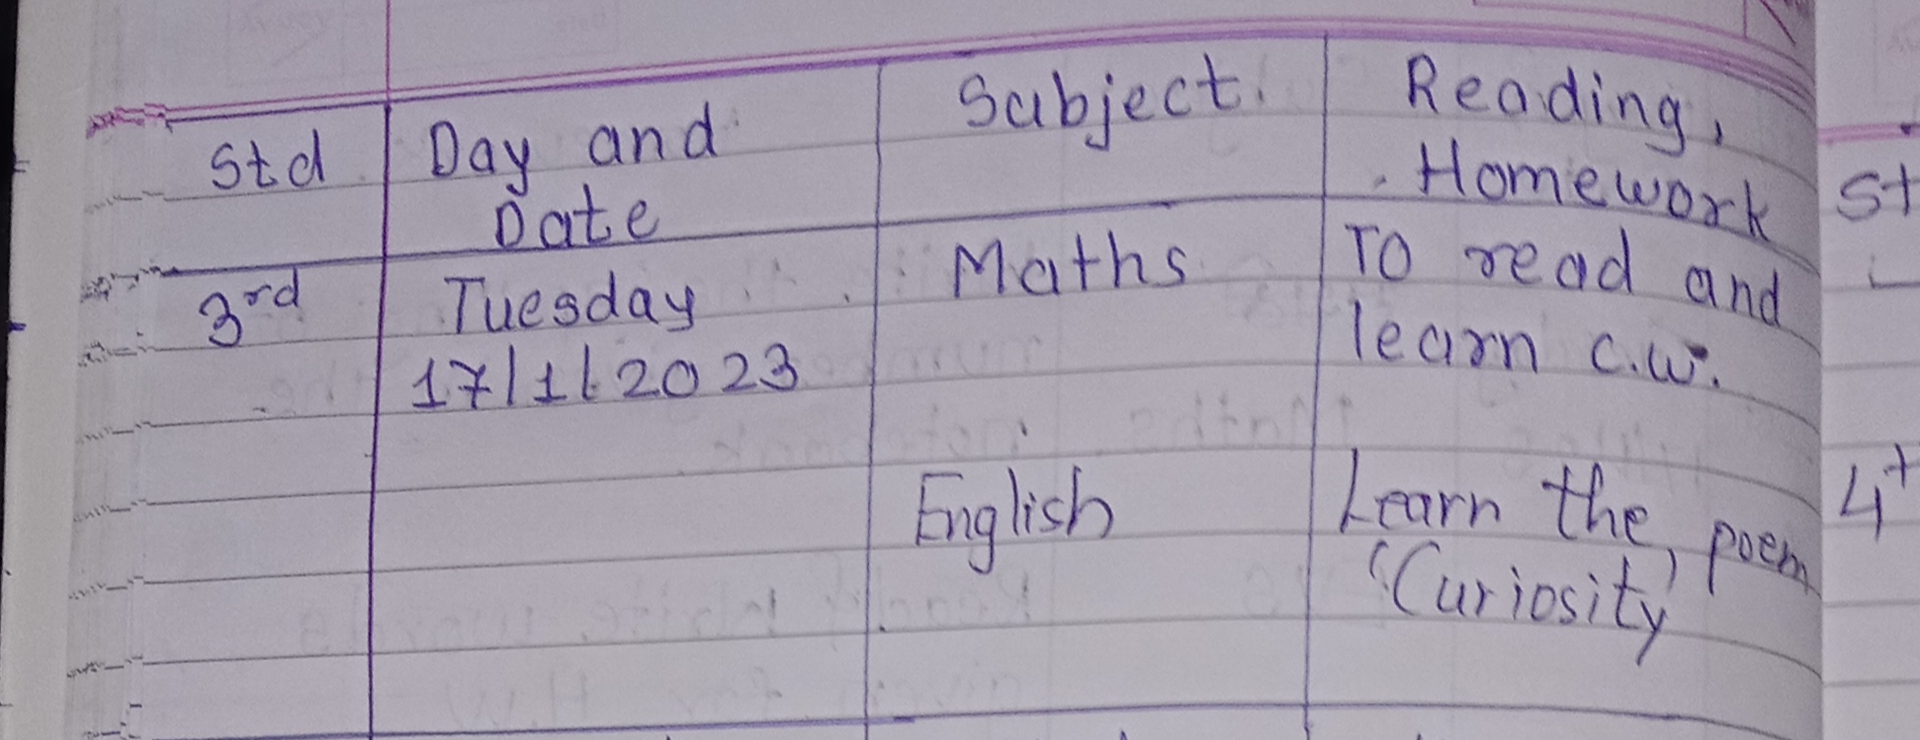 Std Day and Date Subject. Reading, Homework
3rd Tuesday 17/1/2023 Maths To read and learn c.w.
English Learn the poem 'Curiosity'
St
4t